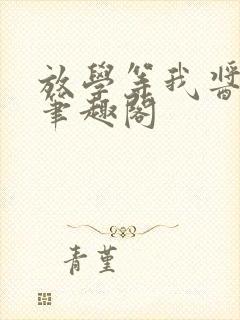 放學等我醬
筆趣閣
青堇